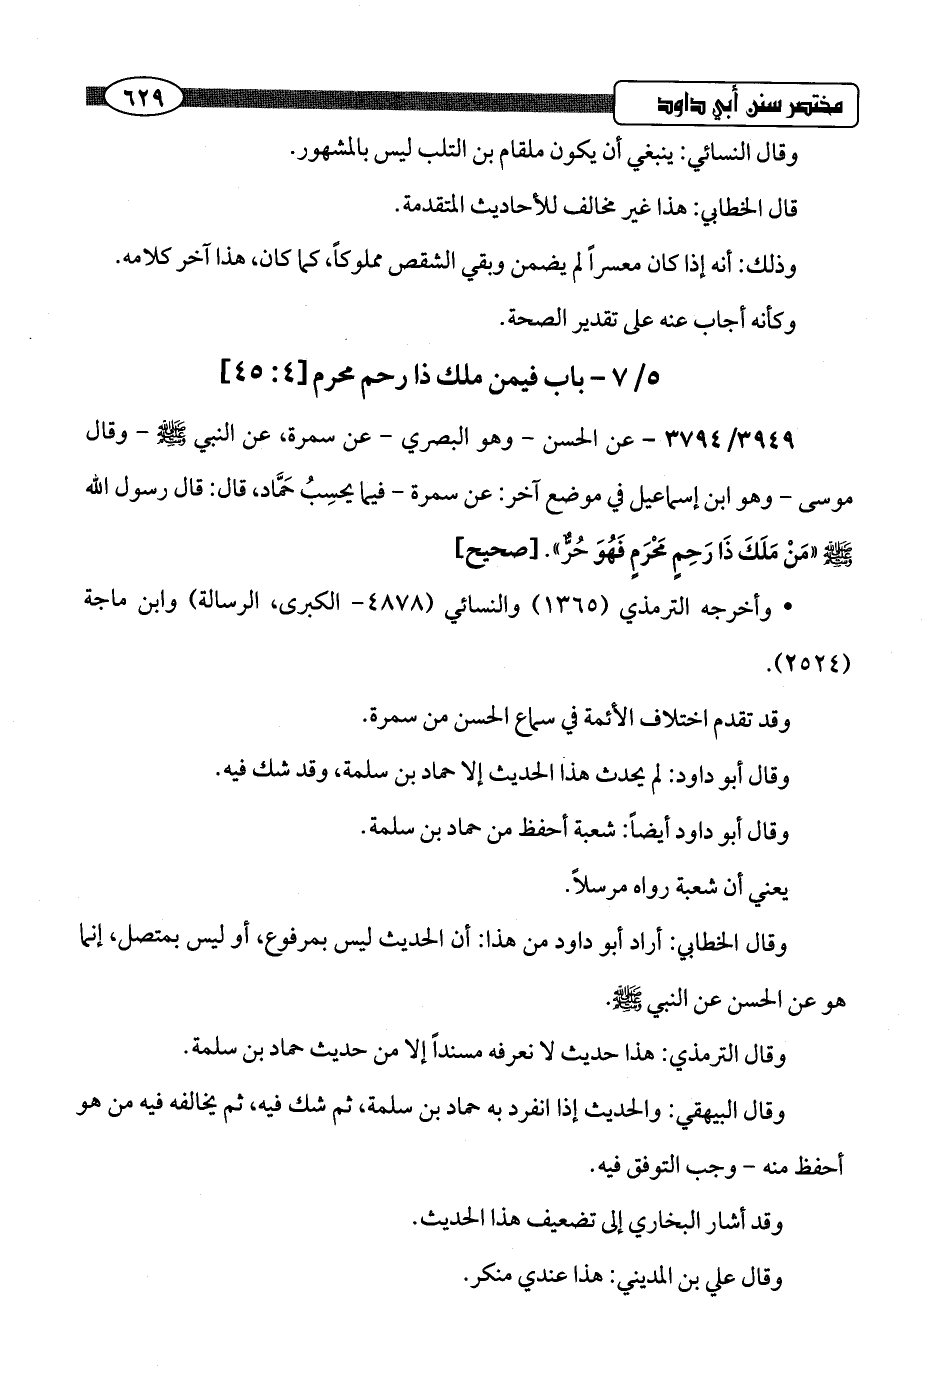 مختصر سنن أبي داود
٦٢٩
وقال النسائي: ينبغي أن يكون ملقام بن التلب ليس بالمشهور.
قال الخطابي: هذا غير مخالف للأحاديث المتقدمة.
وذلك: أنه إذا كان معسراً لم يضمن وبقي الشقص مملوكاً، كما كان، هذا آخر كلامه.
وكأنه أجاب عنه على تقدير الصحة.
٧/٥ - باب فيمن ملك ذا رحم محرم [٤: ٤٥]
٣٧٩٤/٣٩٤٩ - عن الحسن - وهو البصري - عن سمرة، عن النبي ﷺ - وقال
موسى - وهو ابن إسماعيل في موضع آخر: عن سمرة - فيما يحسِبُ حَمَّاد، قال: قال رسول الله
ﷺ «مَنْ مَلَكَ ذَا رَحِمٍ مَحْرَمٍ فَهُوَ حُرٌّ». [صحيح]
• وأخرجه الترمذي (١٣٦٥) والنسائي (٤٨٧٨- الكبرى، الرسالة) وابن ماجة
(٢٥٢٤).
وقد تقدم اختلاف الأئمة في سماع الحسن من سمرة.
وقال أبو داود: لم يحدث هذا الحديث إلا حماد بن سلمة، وقد شك فيه.
وقال أبو داود أيضاً: شعبة أحفظ من حماد بن سلمة.
يعني أن شعبة رواه مرسلاً.
وقال الخطابي: أراد أبو داود من هذا: أن الحديث ليس بمرفوع، أو ليس بمتصل، إنما
هو عن الحسن عن النبي ﷺ.
وقال الترمذي: هذا حديث لا نعرفه مسنداً إلا من حديث حماد بن سلمة.
وقال البيهقي: والحديث إذا انفرد به حماد بن سلمة، ثم شك فيه، ثم يخالفه فيه من هو
أحفظ منه - وجب التوقف فيه.
وقد أشار البخاري إلى تضعيف هذا الحديث.
وقال علي بن المديني: هذا عندي منكر.